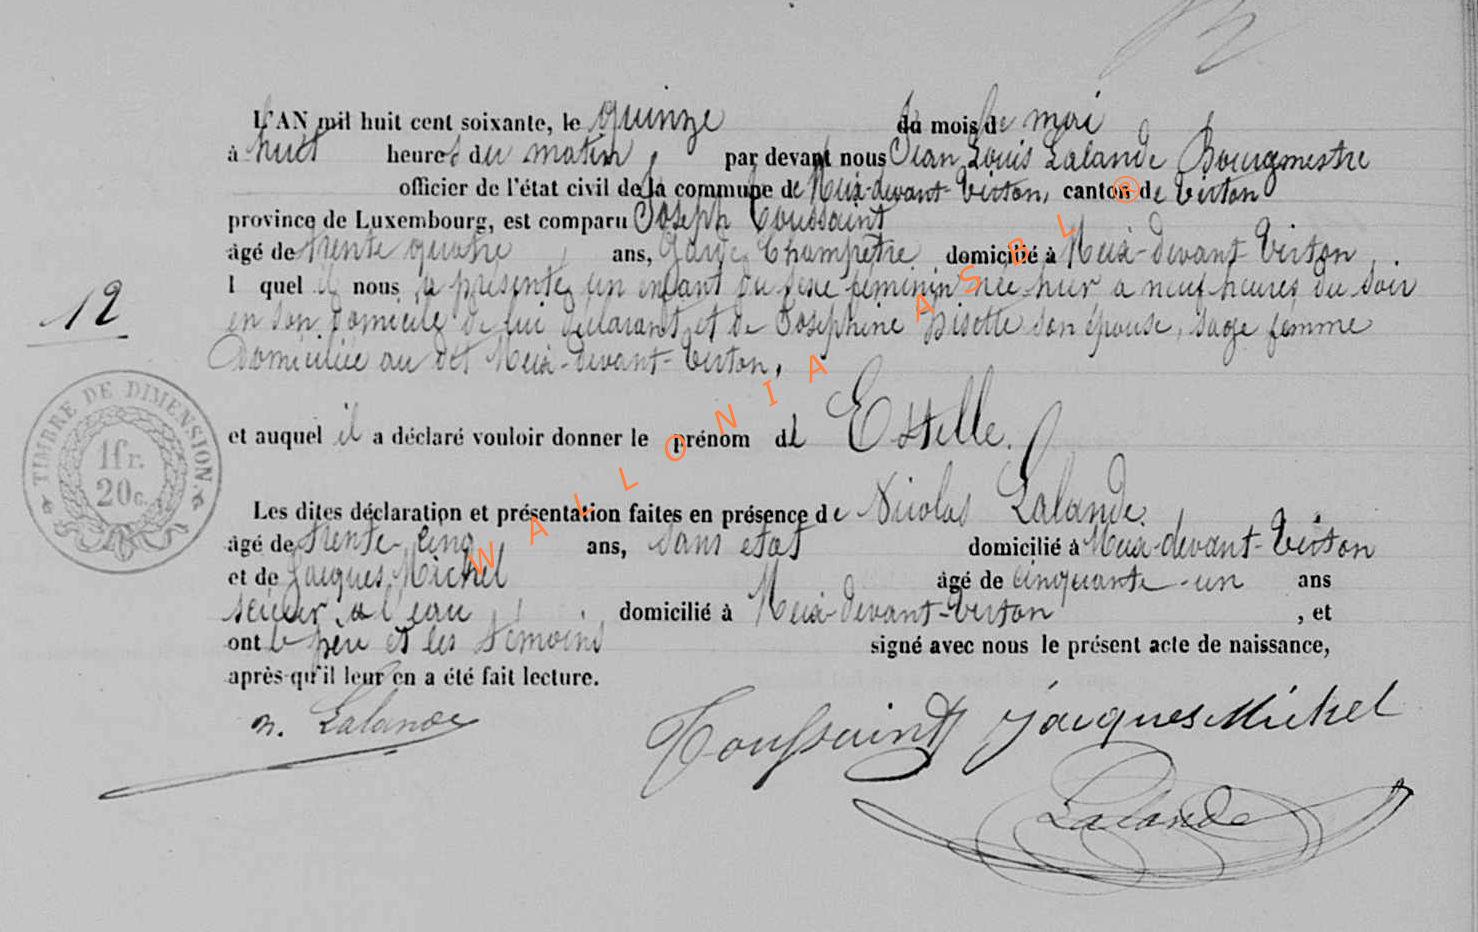 L'AN mil huit cent soixante, le quinze du mois de mai
à huit heures du matin, par devant nous Jean Louis Lalande Bourgmestre
officier de l'état civil de la commune de Meix-devant-Virton, canton de Virton
province de Luxembourg, est comparu Joseph Toussaint
âgé de trente quatre ans, Garde Champêtre domicilié à Meix-devant-Virton
l quel il nous a présenté un enfant du sexe féminin née hier à neuf heures du soir
12
en son domicile de lui déclarant et de Joséphine son épouse, sage femme
Domiciliée au dit Meix-devant-Virton,
TIMBRE DE DIMENSION
1fr.
20c.
et auquel il a déclaré vouloir donner le prénom d Estelle.
Les dites déclaration et présentation faites en présence de Nicolas Lalande
âgé de trente-cinq ans, sans état domicilié à Meix-devant-Virton
et de Jacques Michel âgé de cinquante-un ans
scieur à l'eau domicilié à Meix-devant-Virton, et
ont le père et les témoins signé avec nous le présent acte de naissance,
après qu'il leur en a été fait lecture.
n. Lalande Toussaint Jacques Michel
Lalande
WALLONIA ASBL ®